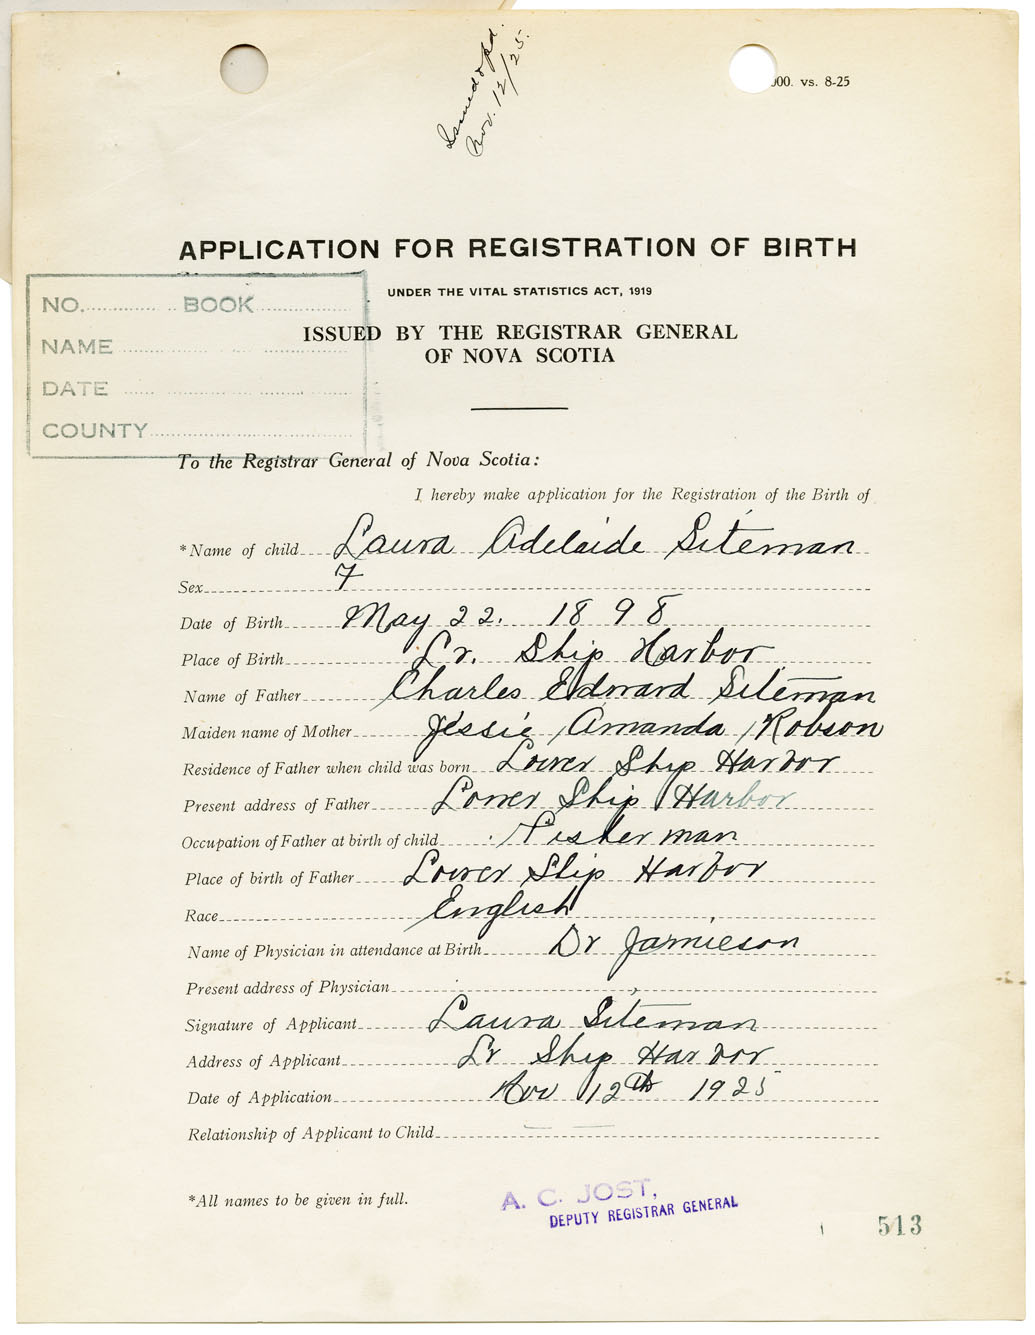 Issued & pd.
Nov. 12/25.
000. vs. 8-25
APPLICATION FOR REGISTRATION OF BIRTH
UNDER THE VITAL STATISTICS ACT, 1919
ISSUED BY THE REGISTRAR GENERAL
OF NOVA SCOTIA
NO. BOOK
NAME
DATE
COUNTY
To the Registrar General of Nova Scotia:
I hereby make application for the Registration of the Birth of
*Name of child Laura Adelaide Siteman
Sex F
Date of Birth May 22. 1898
Place of Birth Lr. Ship Harbor
Name of Father Charles Edward Siteman
Maiden name of Mother Jessie Amanda Robson
Residence of Father when child was born Lower Ship Harbor
Present address of Father Lower Ship Harbor
Occupation of Father at birth of child Fisherman
Place of birth of Father Lower Ship Harbor
Race English
Name of Physician in attendance at Birth Dr Jamieson
Present address of Physician
Signature of Applicant Laura Siteman
Address of Applicant Lr Ship Harbor
Date of Application Nov 12th 1925
Relationship of Applicant to Child
*All names to be given in full.
A. C. JOST,
DEPUTY REGISTRAR GENERAL
513